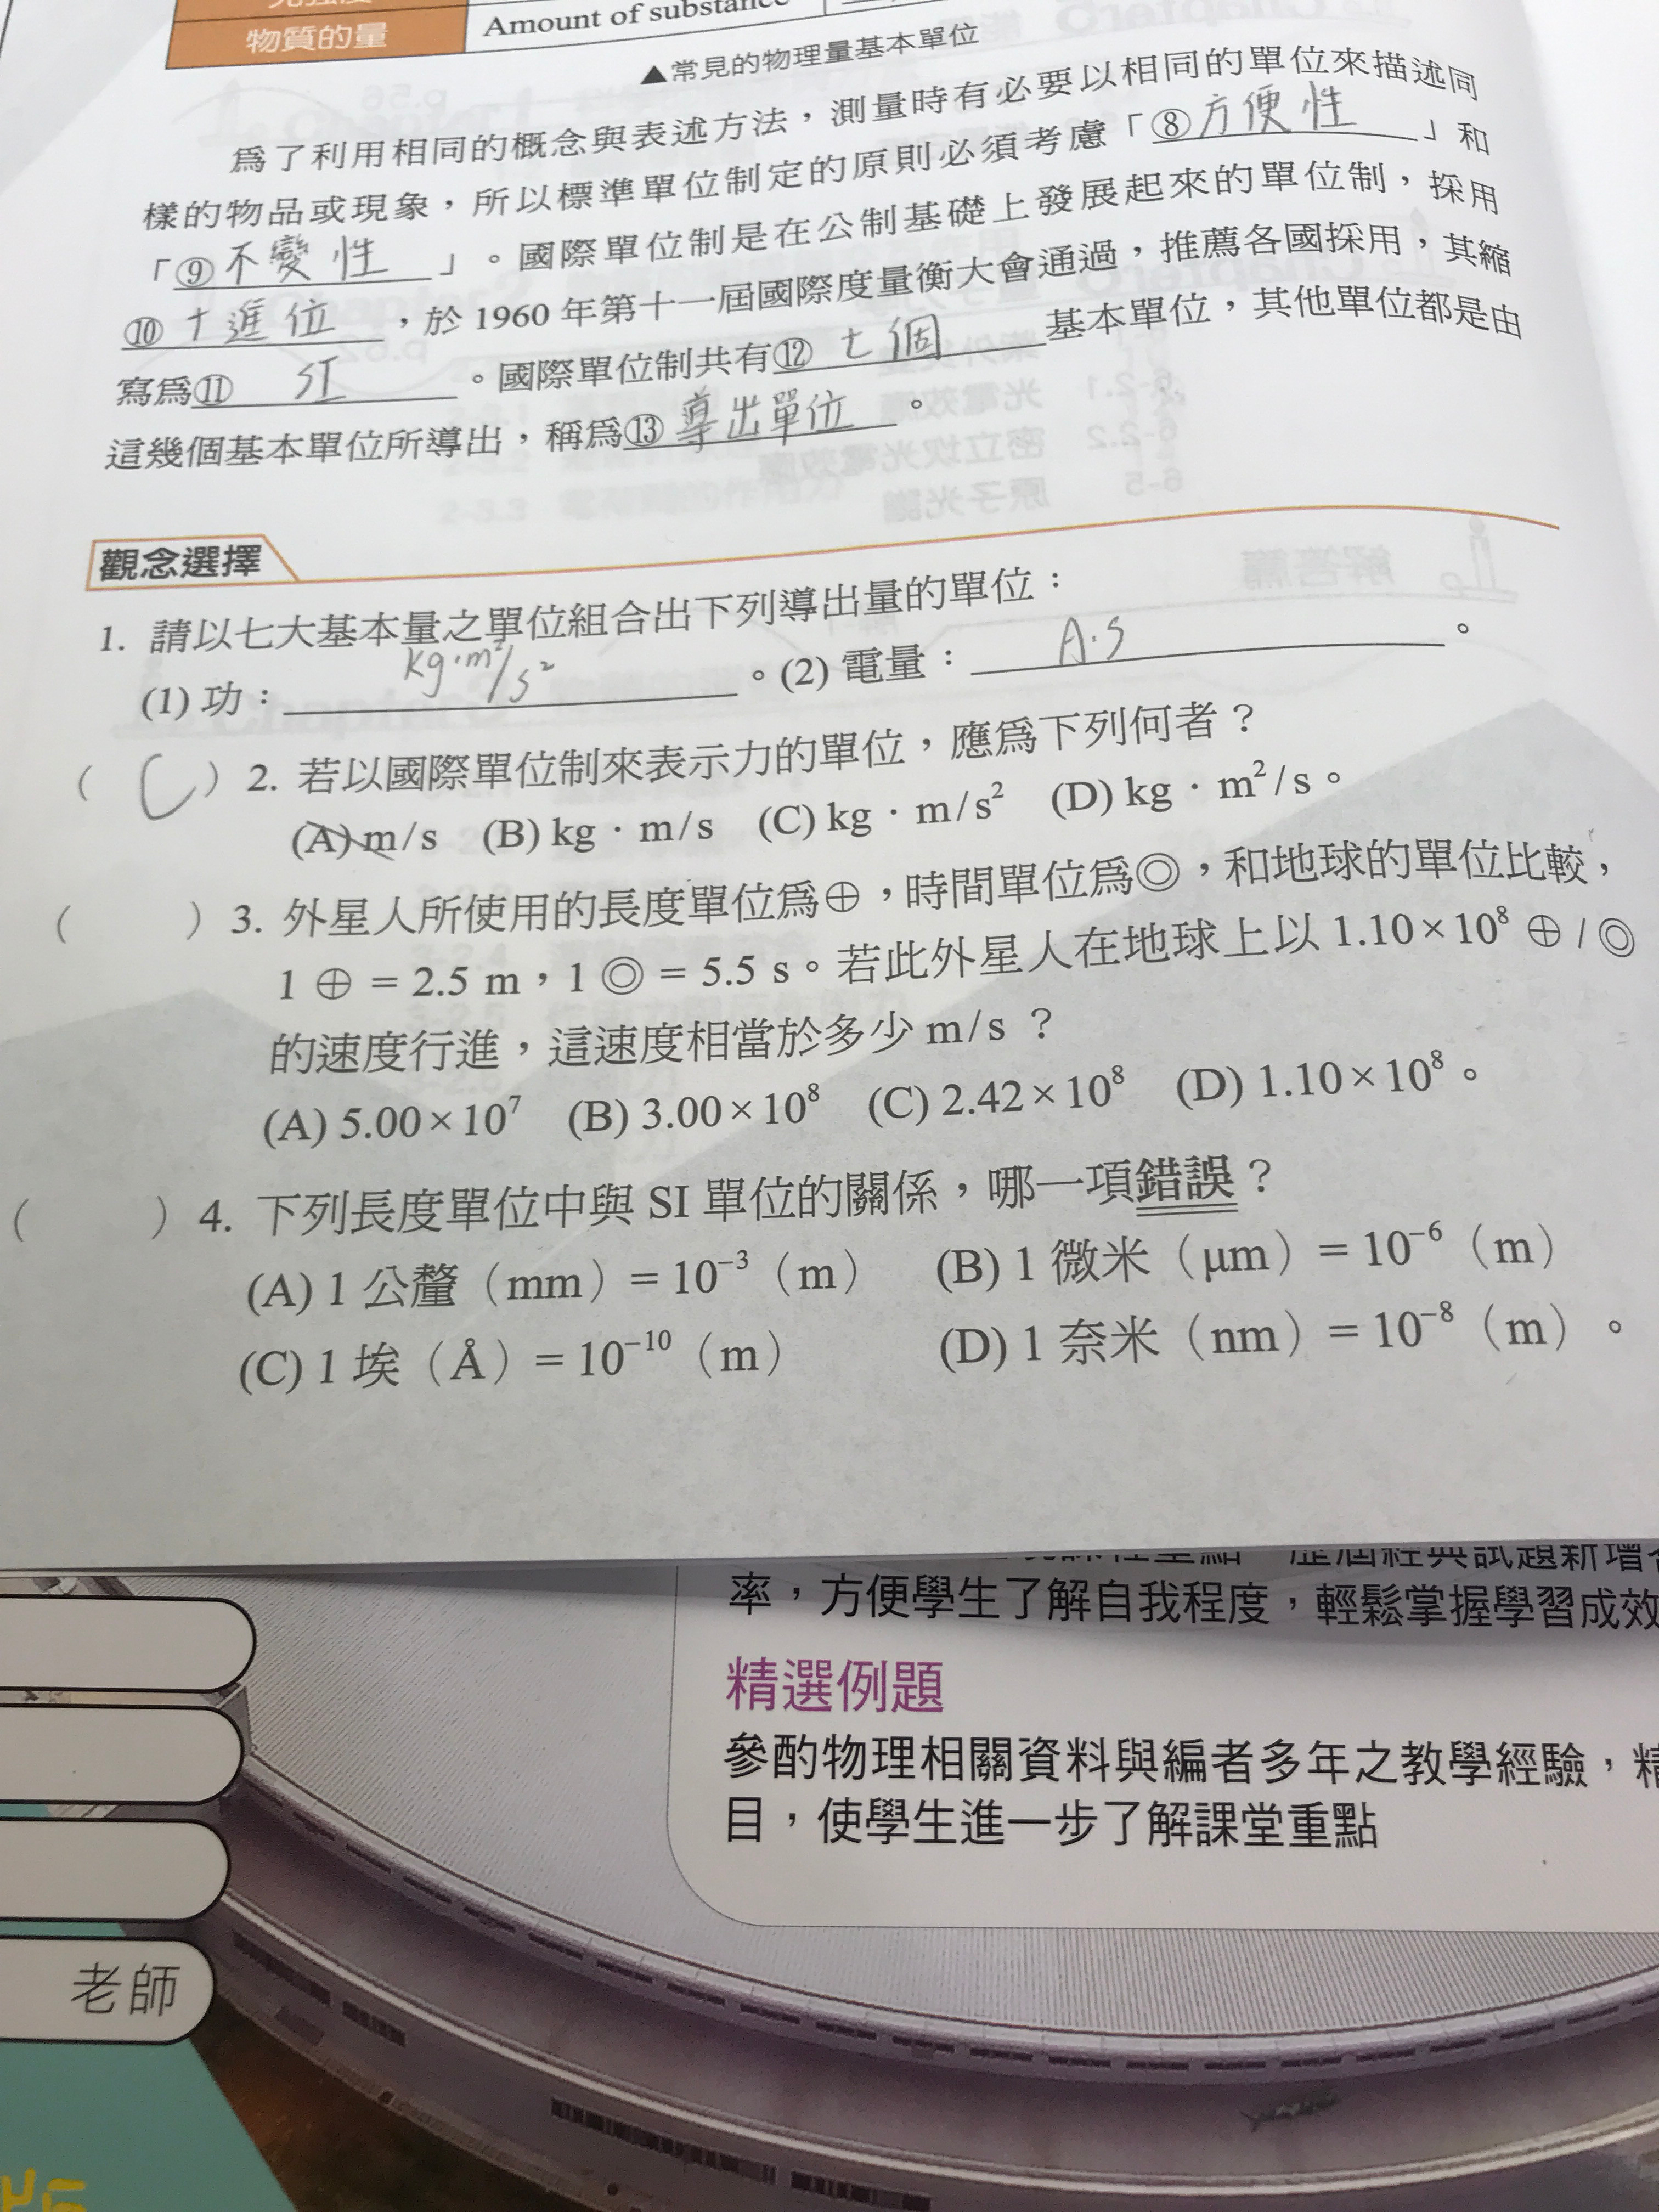 物質的量 Amount of substance
▲常見的物理量基本單位
為了利用相同的概念與表述方法，測量時有必要以相同的單位來描述同
樣的物品或現象，所以標準單位制定的原則必須考慮「⑧方便性」和
「⑨不變性」。國際單位制是在公制基礎上發展起來的單位制，採用
⑩十進位，於 1960 年第十一屆國際度量衡大會通過，推薦各國採用，其縮
寫為⑪ SI 。國際單位制共有⑫七個基本單位，其他單位都是由
這幾個基本單位所導出，稱為⑬導出單位。
觀念選擇
1. 請以七大基本量之單位組合出下列導出量的單位：
(1) 功：kg·m²/s²。(2) 電量：A·s。
( C ) 2. 若以國際單位制來表示力的單位，應為下列何者？
(A) m/s (B) kg．m/s (C) kg．m/s² (D) kg．m²/s。
( ) 3. 外星人所使用的長度單位為⊕，時間單位為◎，和地球的單位比較，
1 ⊕ = 2.5 m，1 ◎ = 5.5 s。若此外星人在地球上以 1.10×10⁸ ⊕ / ◎
的速度行進，這速度相當於多少 m/s ？
(A) 5.00×10⁷ (B) 3.00×10⁸ (C) 2.42×10⁸ (D) 1.10×10⁸。
( ) 4. 下列長度單位中與 SI 單位的關係，哪一項錯誤？
(A) 1 公釐（mm）= 10⁻³（m） (B) 1 微米（μm）= 10⁻⁶（m）
(C) 1 埃（Å）= 10⁻¹⁰（m） (D) 1 奈米（nm）= 10⁻⁸（m）。
率，方便學生了解自我程度，輕鬆掌握學習成效
精選例題
參酌物理相關資料與編者多年之教學經驗，精
目，使學生進一步了解課堂重點
老師